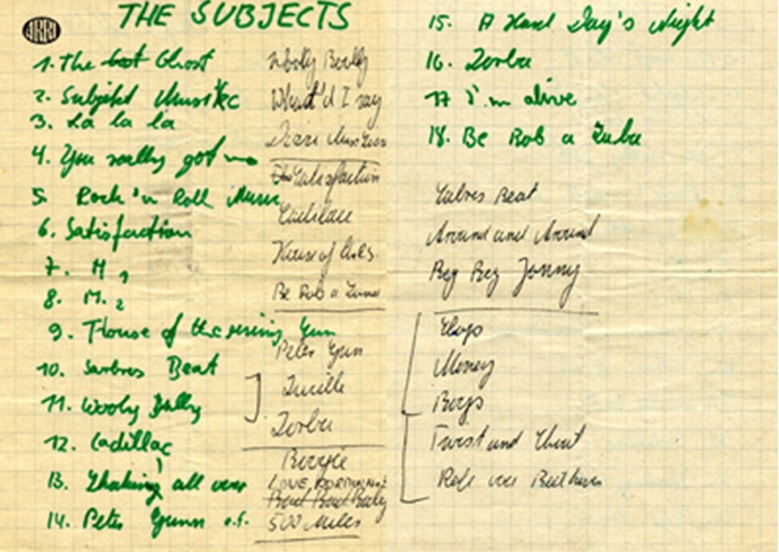 THE SUBJECTS
ARRI
1. The Ghost
2. Subjekt Musikc
3. La la la
4. You really got me
5. Rock'n Roll Music
6. Satisfaction
7. M 1
8. M. 2
9. House of the rising Gun
10. Sabres Beat
11. Wooly Bully
12. Cadillac
13. Shaking all over
14. Peter Gunn e.f.
Wooly Bully
What'd I say
Dizzi
Satisfaction
Cadillac
House of
Be Bob a Lula
Peter Gun
Lucille
Zorba
Boogie
LOVE
Baby
500 Miles
15. A Hard Day's Night
16. Zorba
17 I'm alive
18. Be Bob a Lula
Sabres Beat
Around and Around
Beg Beg Jonny
Money
Boys
Twist and Shout
Role over Beethoven